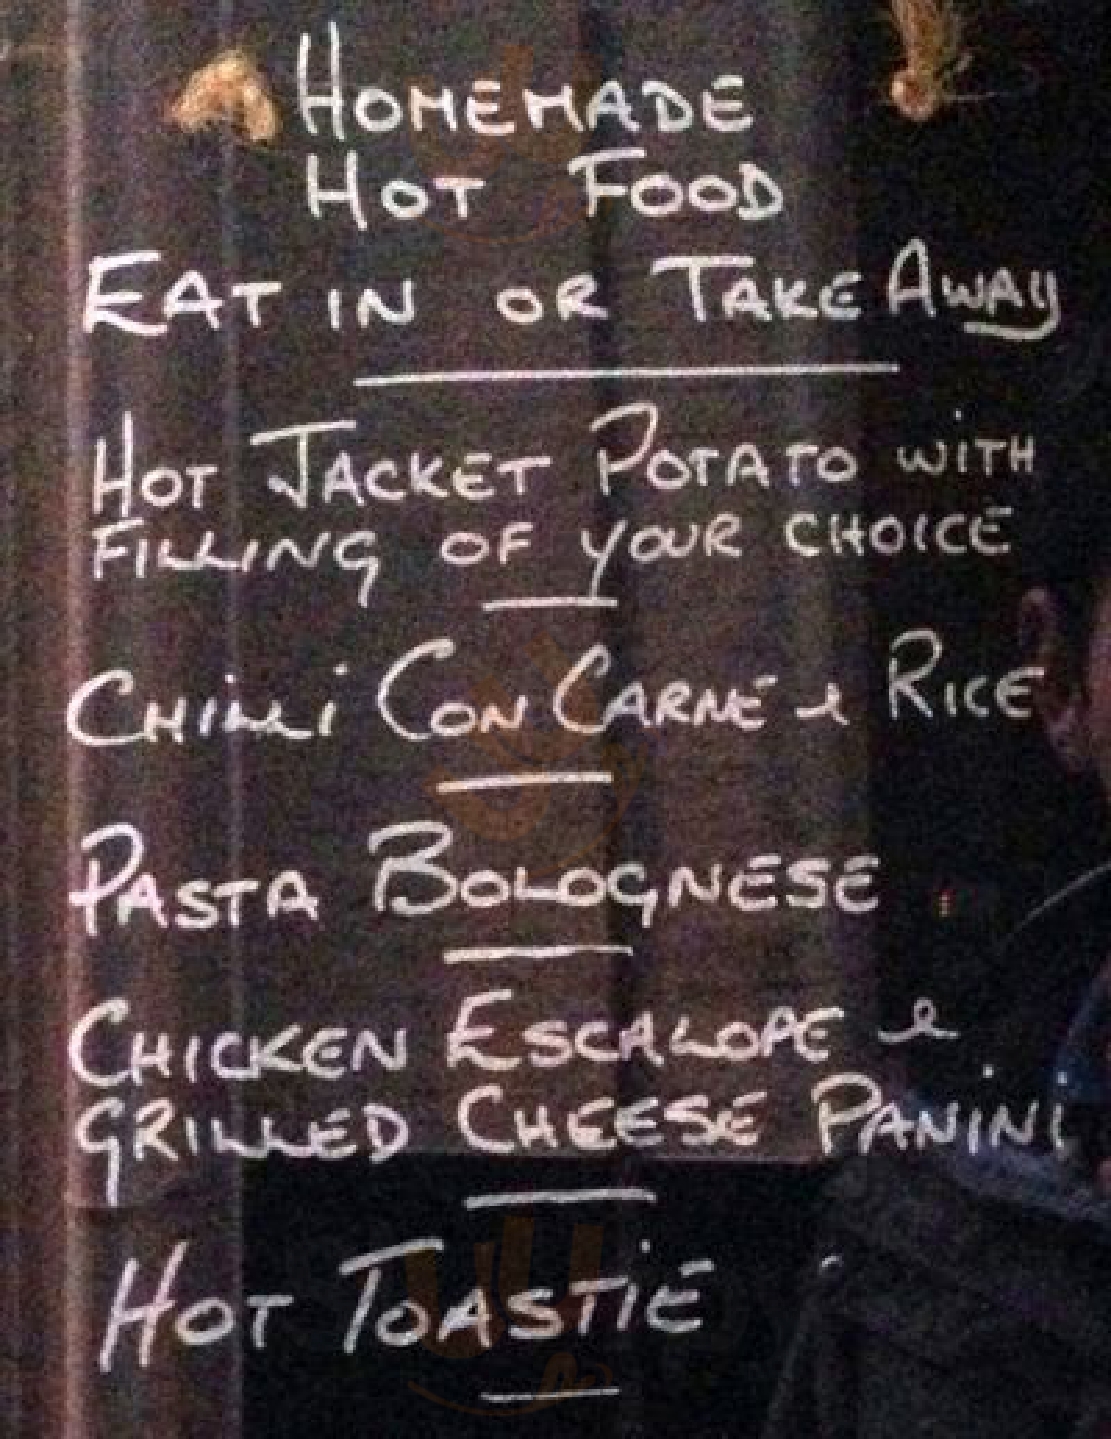 HOMEMADE
HOT FOOD
EAT IN OR TAKE AWAY
HOT JACKET POTATO WITH
FILLING OF YOUR CHOICE
CHILLI CON CARNE & RICE
PASTA BOLOGNESE
CHICKEN ESCALOPE &
GRILLED CHEESE PANINI
HOT TOASTIE